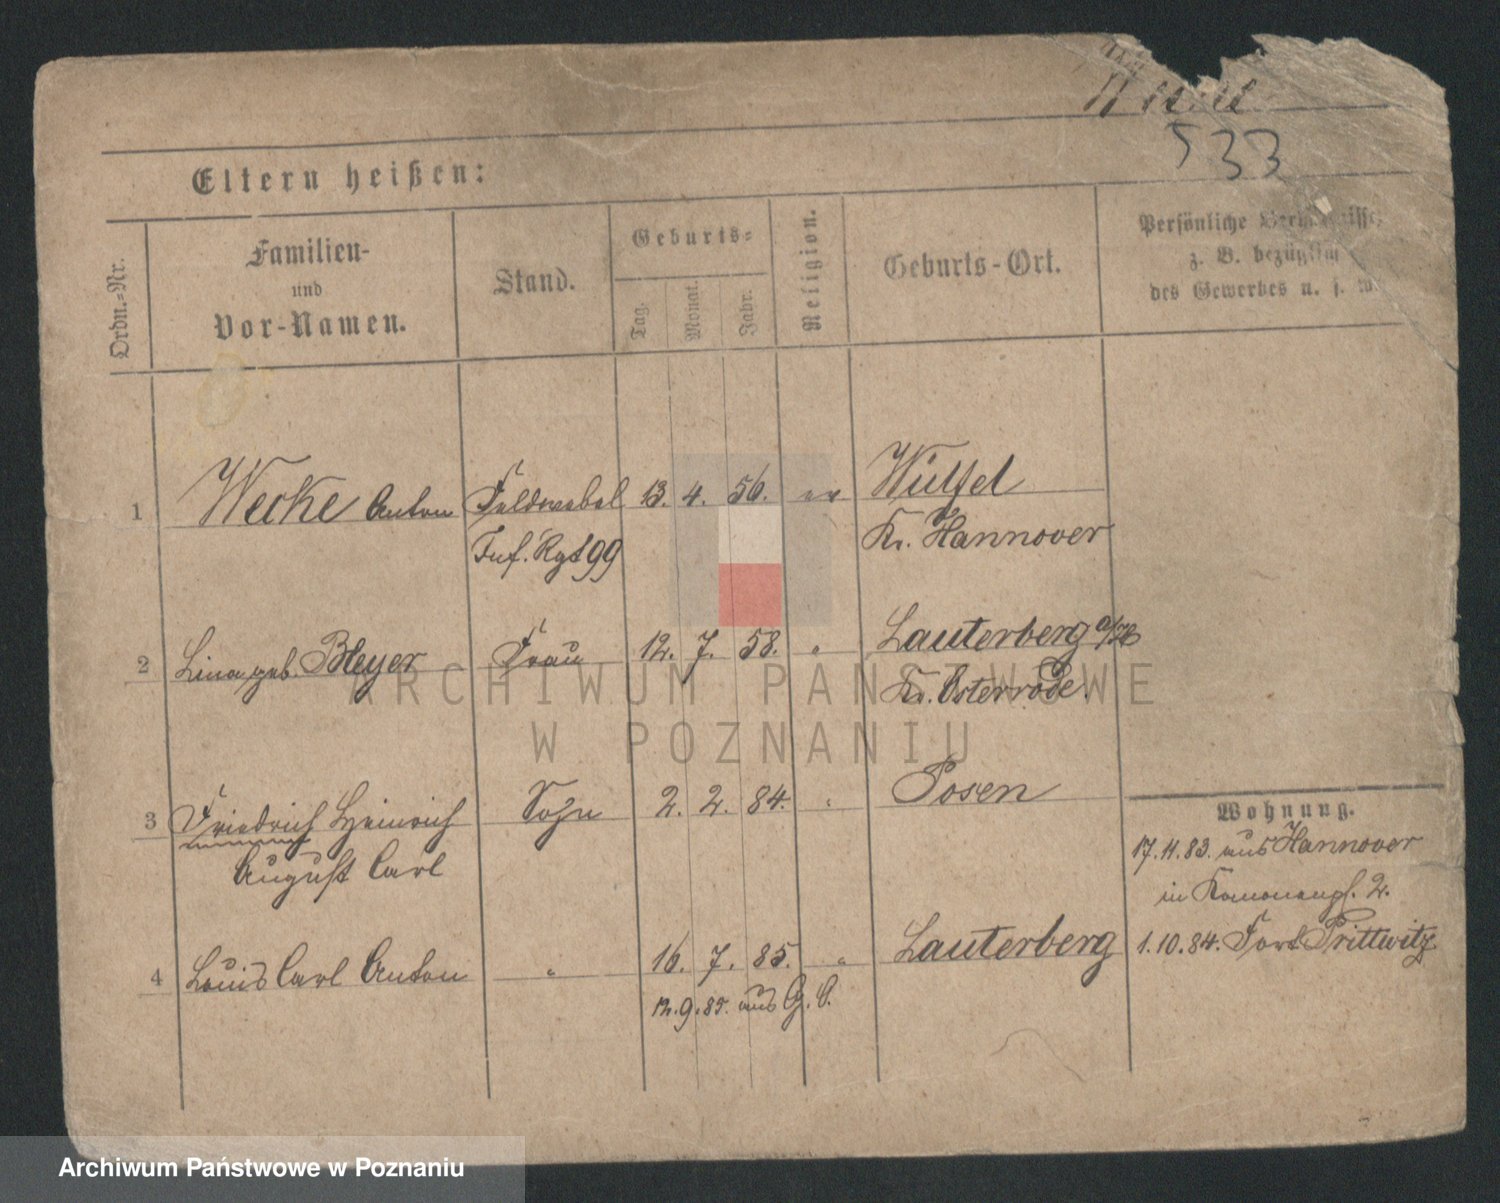 533
Eltern heißen:
Ordn.=Nr.
Familien-
und
Vor-Namen.
Stand.
Geburts=
Tag.
Monat.
Jahr.
Religion.
Geburts-Ort.
Persönliche
z. B. bezüglich
des Gewerbes u. s. w.
1 Wecke Anton Feldwebel 13. 4. 56. ev Wülfel
Inf. Rgt 99 Kr. Hannover
2 Lina geb. Meyer Frau 12. 7. 58. " Lauterberg a/H
Kr. Osterrode.
3 Friedrich Heinrich Sohn 2. 2. 84. " Posen
August Carl
4 Louis Carl Anton " 16. 7. 85. " Lauterberg
12. 9. 85. aus G. C.
Wohnung.
17. 11. 83. aus Hannover
in 2.
1. 10. 84. Fort Prittwitz
ARCHIWUM PAŃSTWOWE
W POZNANIU
Archiwum Państwowe w Poznaniu